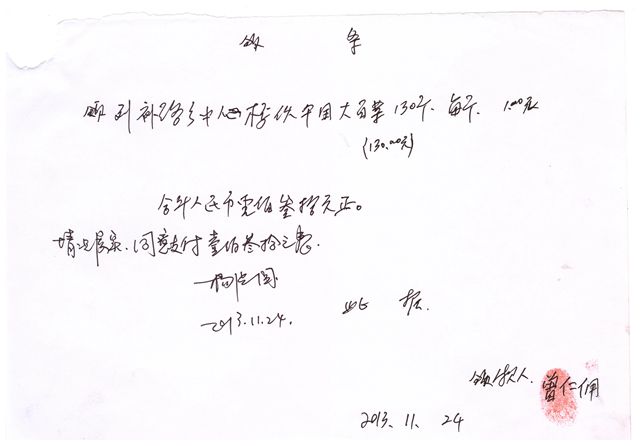 领 条
领到补路乡中心校供中国大白菜130斤、每斤、1.00元
(130.00元)
合计人民币壹佰叁拾元正。
情况属实、同意支付壹佰叁拾元整.
2013.11.24.
此 据.
领款人. 曾仁佣
2013、11、24